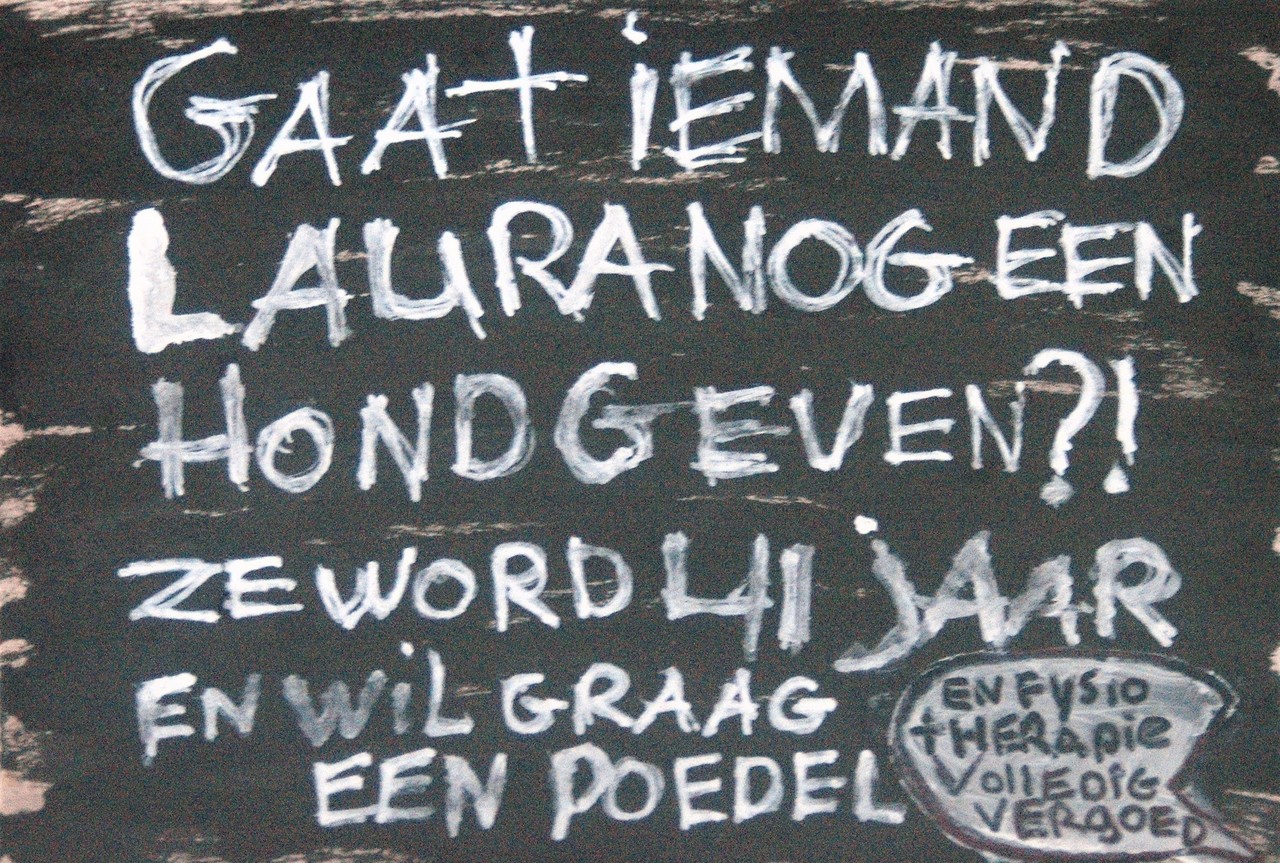 GAAT iEMAND
LAURA NOG EEN
HOND GEVEN?!
ZE WORD 41 jAAR
EN WiL GRAAG
EEN POEDEL
EN FYSiO
tHERApiE
VOllEDiG
VERGOED